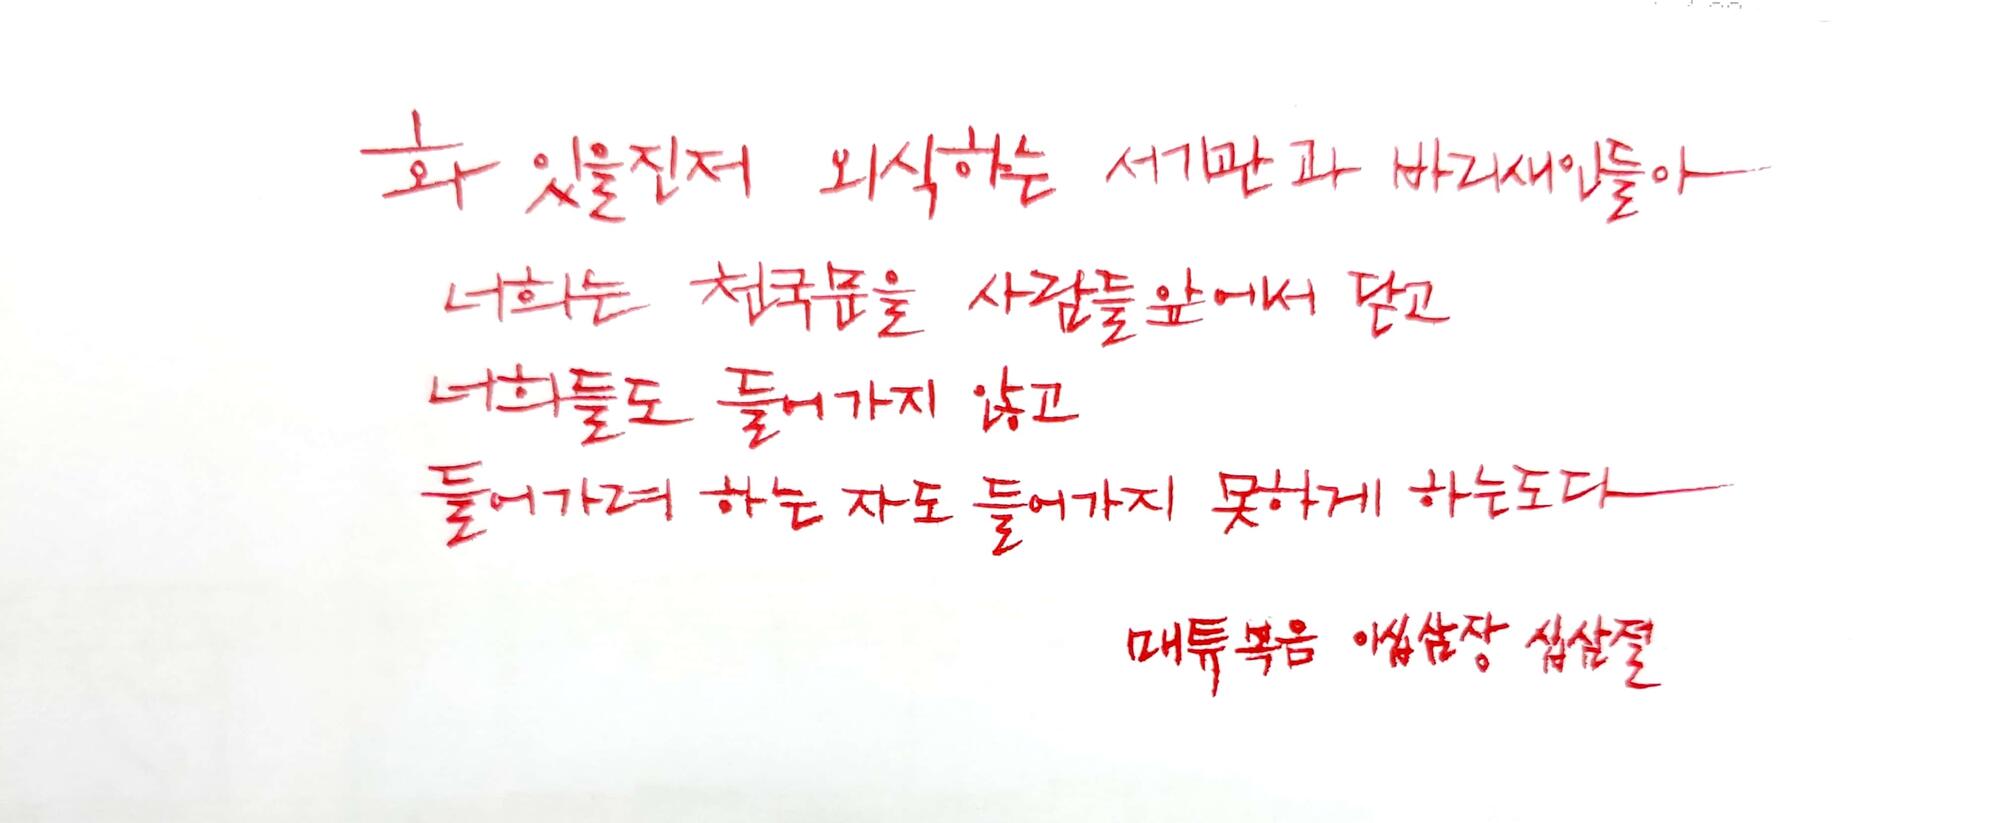 화 있을진저 외식하는 서기관과 바리새인들아
너희는 천국문을 사람들앞에서 닫고
너희들도 들어가지 않고
들어가려 하는 자도 들어가지 못하게 하는도다
매튜복음 이십삼장 십삼절